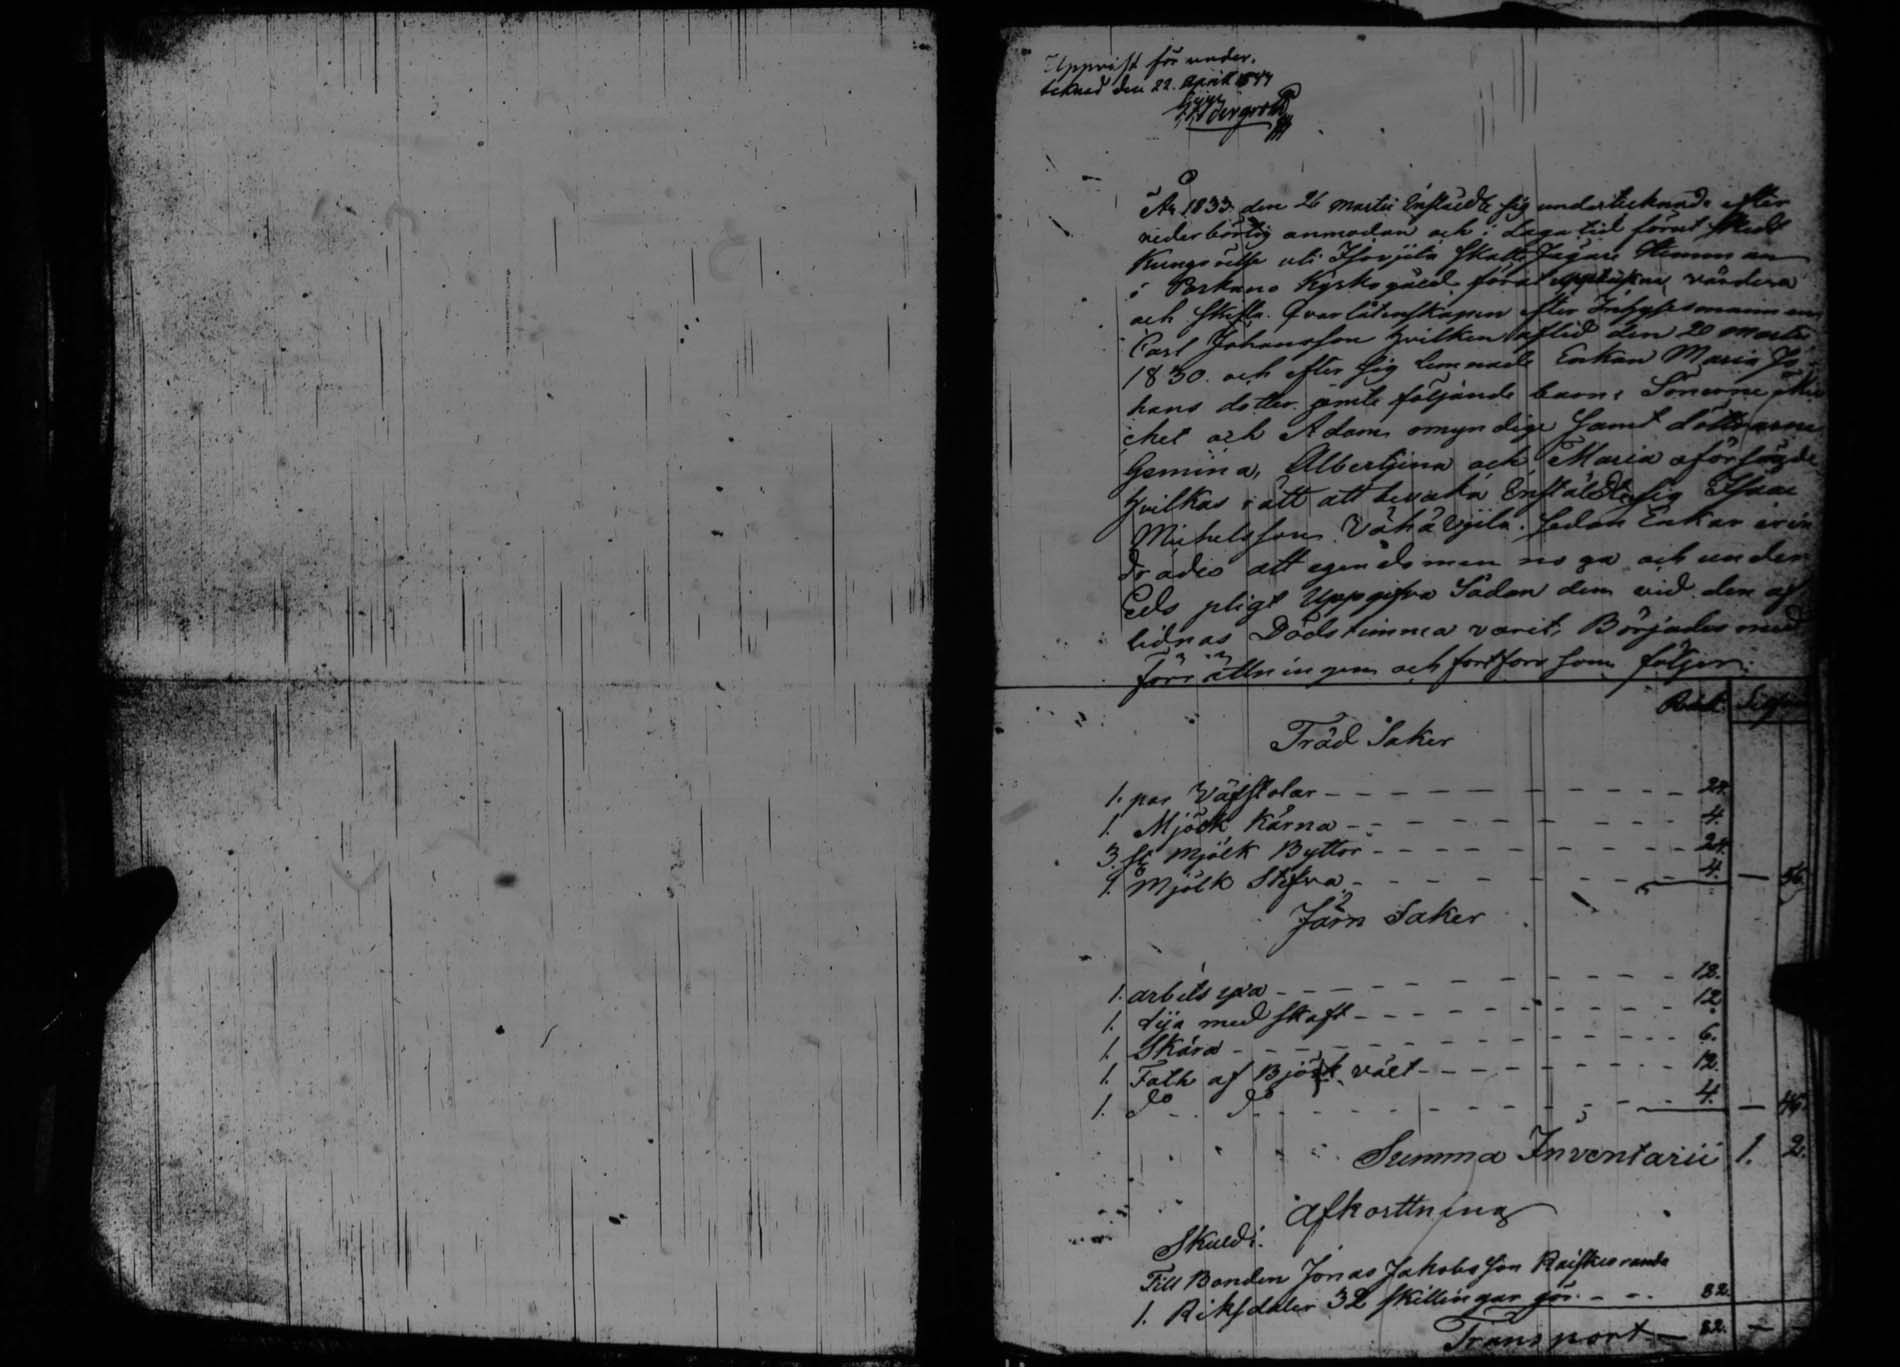 Uppvist för under,
teknad den 22. April
År 1833 den 26 Martii Instälde sig undertecknade efter
vederbörlig anmodan och i Laga tid förut skedt
Kungörelse uti Skatte Jägare Hemman
i Kyrkogäld föratt värdera
och skifta Qvarlåtenskapen efter Inhysesmannen
Carl Johansson hvilken afled den 20 Martii
1830. och efter sig lemnade Enkan Maria Jo-
hans dotter jemte följande barn: Sönerne Mi-
chel och Adam omyndige samt döttrarne
Gemina, Albertjina och Maria oförsörjde
hvilkas rätt att bevaka Instälde sig Isaac
Michelsson Sedan Enkan erin
drades att egendomen noga och under
Eds pligt Uppgifva Sådan dem vid den af
lidnas Dödstimma varit, Börjades med
Förrättningen och fortfors som följer:
Träd Saker
1. par Väfstolar - - - 24.
1. Mjölk Kärna - - - 4.
3. st Mjölk Byttor - - - 24.
1. Mjölk Stefva - - - 4. — 56
Järn Saker
1. arbets yxa - - - 12.
1. Lija med skaft - - - 12
1. Skära - - - 6.
1. Falk af - - - 12.
1. do do - - - 4. — 46.
Summa Inventarii 1. 2.
Afkorttning
Skuld:
Till Bonden Jonas Jakobsson
1. Riksdaler 32 skillingar gör. - - 82.
Transport — 82. — -